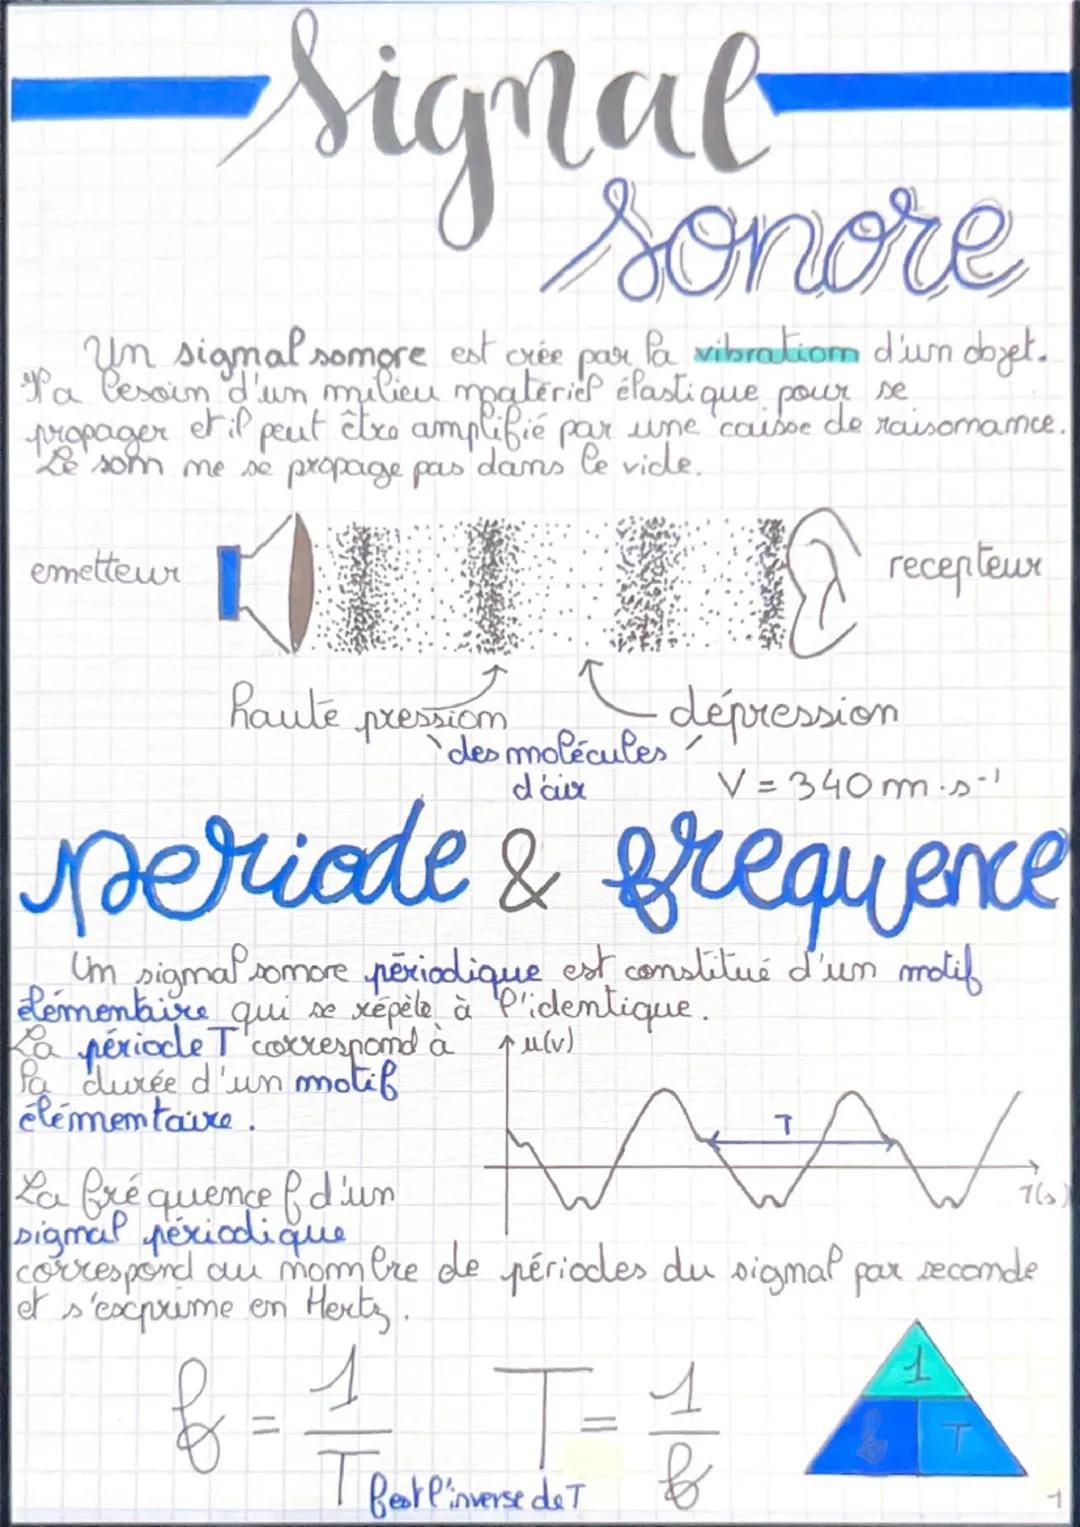 Signal
sonore
Un signal sonore est crée par la vibration d'un objet.
Il a besoin d'un milieu matériel élastique pour se
propager et il peut être amplifié par une caisse de raisonnance.
Le son ne se propage pas dans le vide.
emetteur
recepteur
haute pression
dépression
des molécules
d'air
V = 340 m.s⁻¹
periode & frequence
Un signal sonore périodique est constitué d'un motif
élémentaire qui se répète à l'identique.
La période T correspond à
la durée d'un motif
élémentaire.
u(v)
T
T(s)
La fréquence f d'un
signal périodique
correspond au nombre de périodes du signal par seconde
et s'exprime en Hertz.
f = 1/T
T = 1/f
f est l'inverse de T
1
f T
1